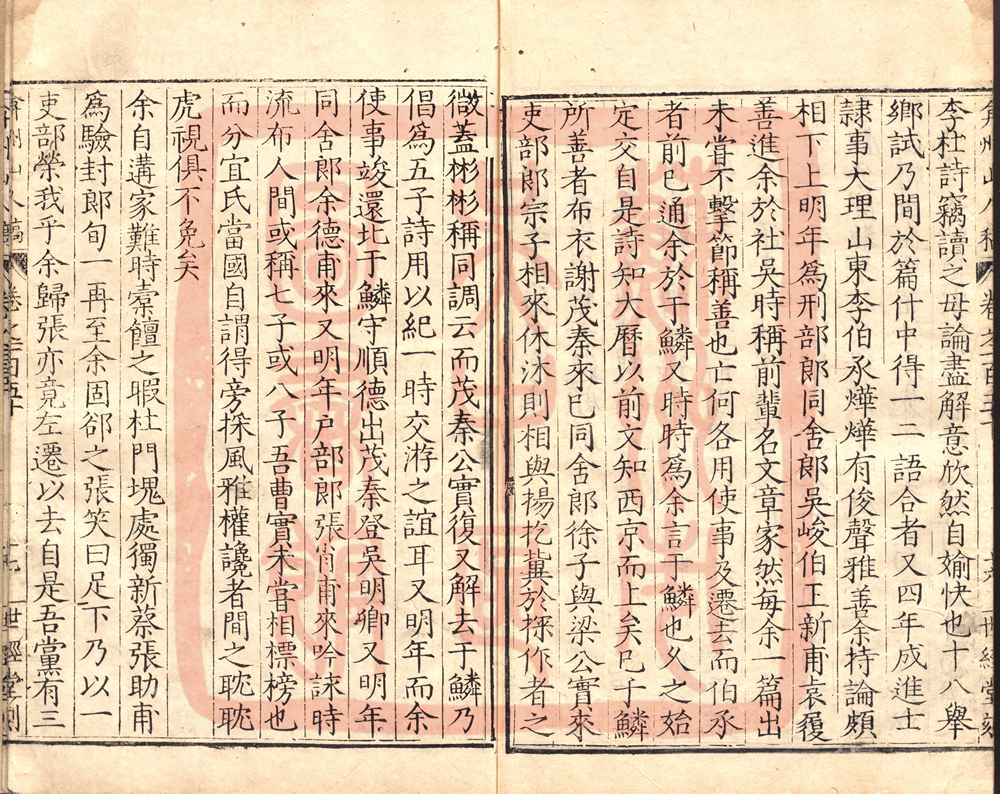 李杜詩竊讀之毋論盡解意欣然自媮快也十八舉
鄉試乃間於篇什中得一二語合者又四年成進士
隷事大理山東李伯承燁燁有俊聲雅善余持論頗
相下上明年為刑部郎同舍郎吳峻伯王新甫袁履
善進余於社吳時稱前輩名文章家然每余一篇出
未嘗不擊節稱善也亡何各用使事及遷去而伯承
者前已通余於于鱗又時時為余言于鱗也久之始
定交自是詩知大曆以前文知西京而上矣已于鱗
所善者布衣謝茂秦來已同舍郎徐子與梁公實來
吏部郎宗子相來休沐則相與揚扢冀於探作者之
微蓋彬彬稱同調云而茂秦公實復又解去于鱗乃
倡為五子詩用以紀一時交游之誼耳又明年而余
使事竣還北于鱗守順德出茂秦登吳明卿又明年
同舍郎余德甫來又明年戶部郎張肖甫來吟詠時
流布人間或稱七子或八子吾曹實未嘗相標榜也
而分宜氏當國自謂得旁採風雅權讒者間之耽耽
虎視俱不免矣
余自遘家難時橐饘之暇杜門塊處獨新蔡張助甫
為驗封郎旬一再至余固郤之張笑曰足下乃以一
吏部榮我乎余歸張亦竟左遷以去自是吾黨有三